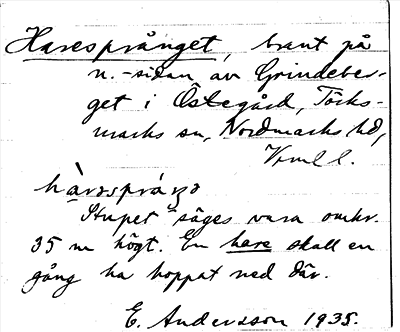 Haresprånget, brant på
n.-sidan av Grindeber-
get i Östegård, Töcks-
marks sn, Nordmarks hd,
Vrml l.
hàrəspráŋə
Stupet säges vara omkr.
35 m högt. En hare skall en
gång ha hoppat ned där.
E. Andersson 1935.